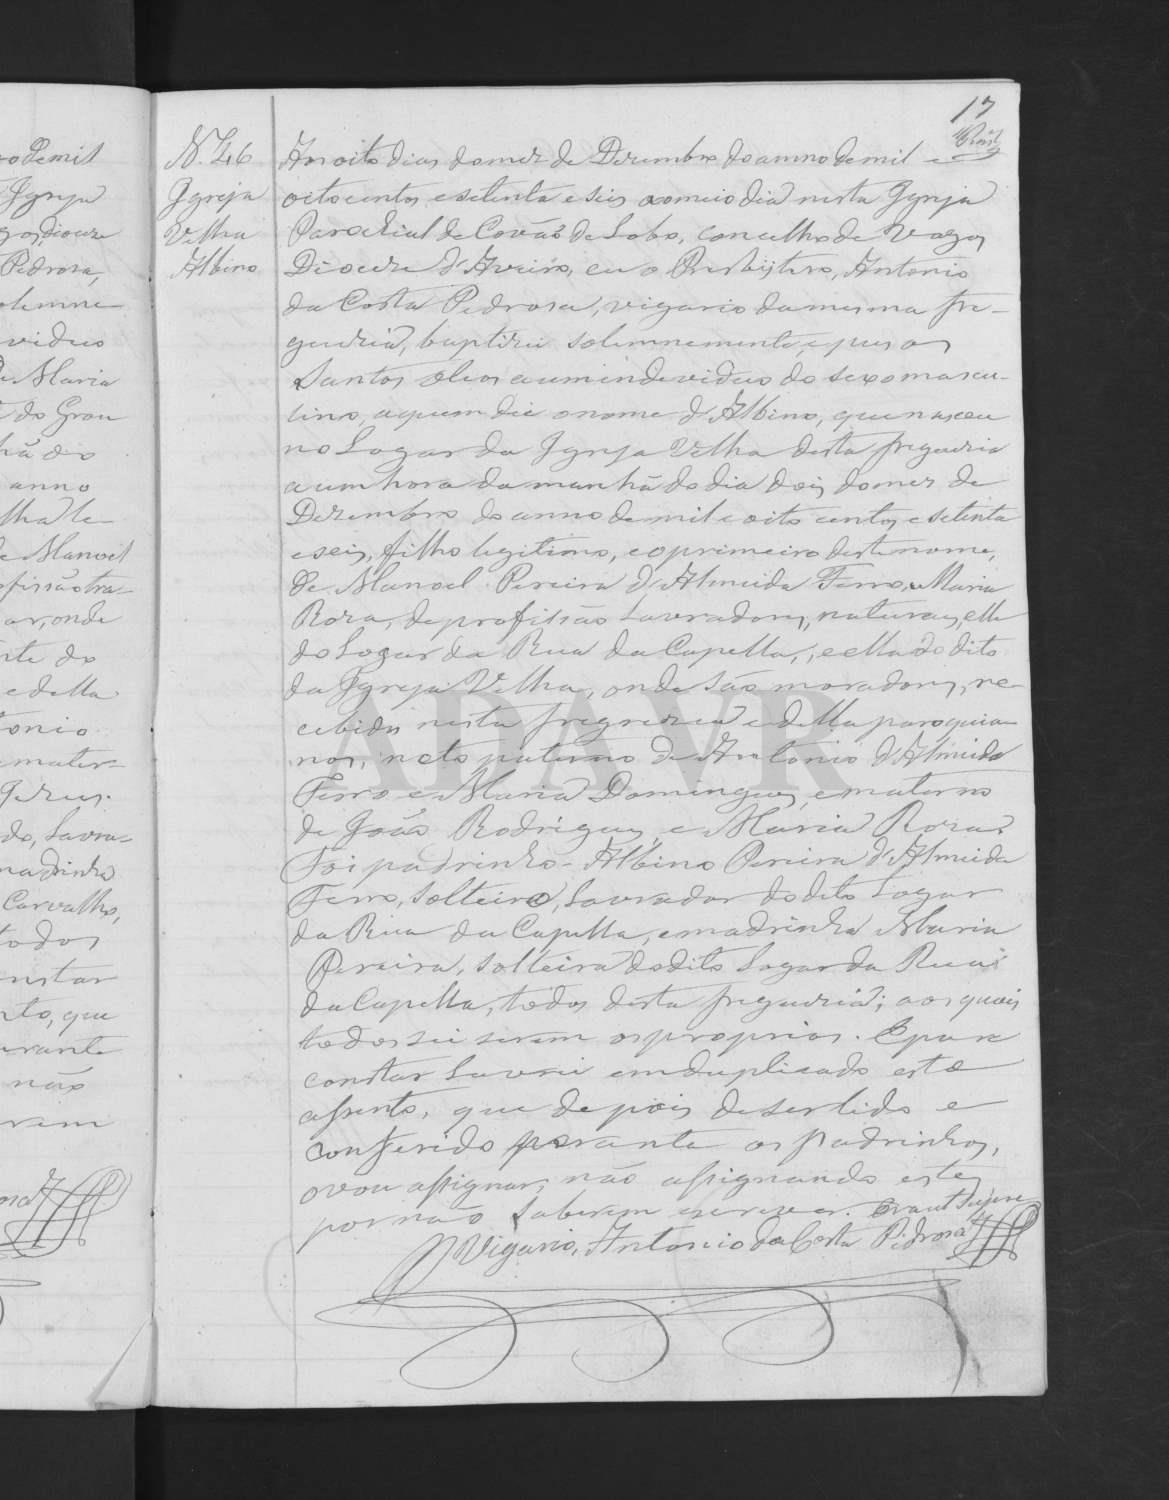 17
N. 46
Igreja
Velha
Albino
Aos oito dias do mez de Dezembro do anno de mil e
oitocentos e setenta e seis ao meio dia nesta Igreja
Parochial de Covão de Lobo, concelho de Vagos,
Diocese d'Aveiro, eu o Presbytero, Antonio
da Costa Pedrosa, vigario da mesma fre-
guezia, baptizei solemnemente, e pus os
Santos oleos a um individuo do sexo mascu-
lino, a quem dei o nome d'Albino, que nasceu
no Logar da Igreja Velha desta freguezia
a um hora da manhã do dia dois do mez de
Dezembro do anno de mil e oito centos e setenta
e seis, filho legitimo, e o primeiro deste nome,
de Manoel Pereira d'Almeida Ferro, e Maria
Roza, de profissão Lavradores, naturaes, elle
do Logar da Rua da Capella, e ella do dito
da Igreja Velha, onde são moradores, re-
cebidos nesta freguezia e della paroquia-
nos, neto paterno de Antonio d'Almeida
Ferro e Maria Domingues, e materno
de João Rodrigues e Maria Roza.
Foi padrinho - Albino Pereira d'Almeida
Ferro, solteiro, Lavrador do dito Logar
da Rua da Capella, e madrinha Maria
Pereira, solteira do dito Logar da Rua
da Capella, todos desta freguezia; aos quaes
todos sei serem os proprios. E para
constar Lavrei em duplicado este
assento, que depois de ser lido e
conferido perante os Padrinhos,
o vou assignar, não assignando estes
por não saberem escrever. Era ut supra
O Vigario, Antonio da Costa Pedrosa
ADAVR
o de mil
Igreja
gos, Diocese
Pedrosa,
olemne
viduo
de Maria
do Gran
hã do
anno
lha le-
de Manoel
ofissão tra-
ar, onde
nte do
e della
tonio
mater-
Jezus.
do, Lavra-
madrinha
Carvalho,
todos
onstar
nto, que
erante
não
rem